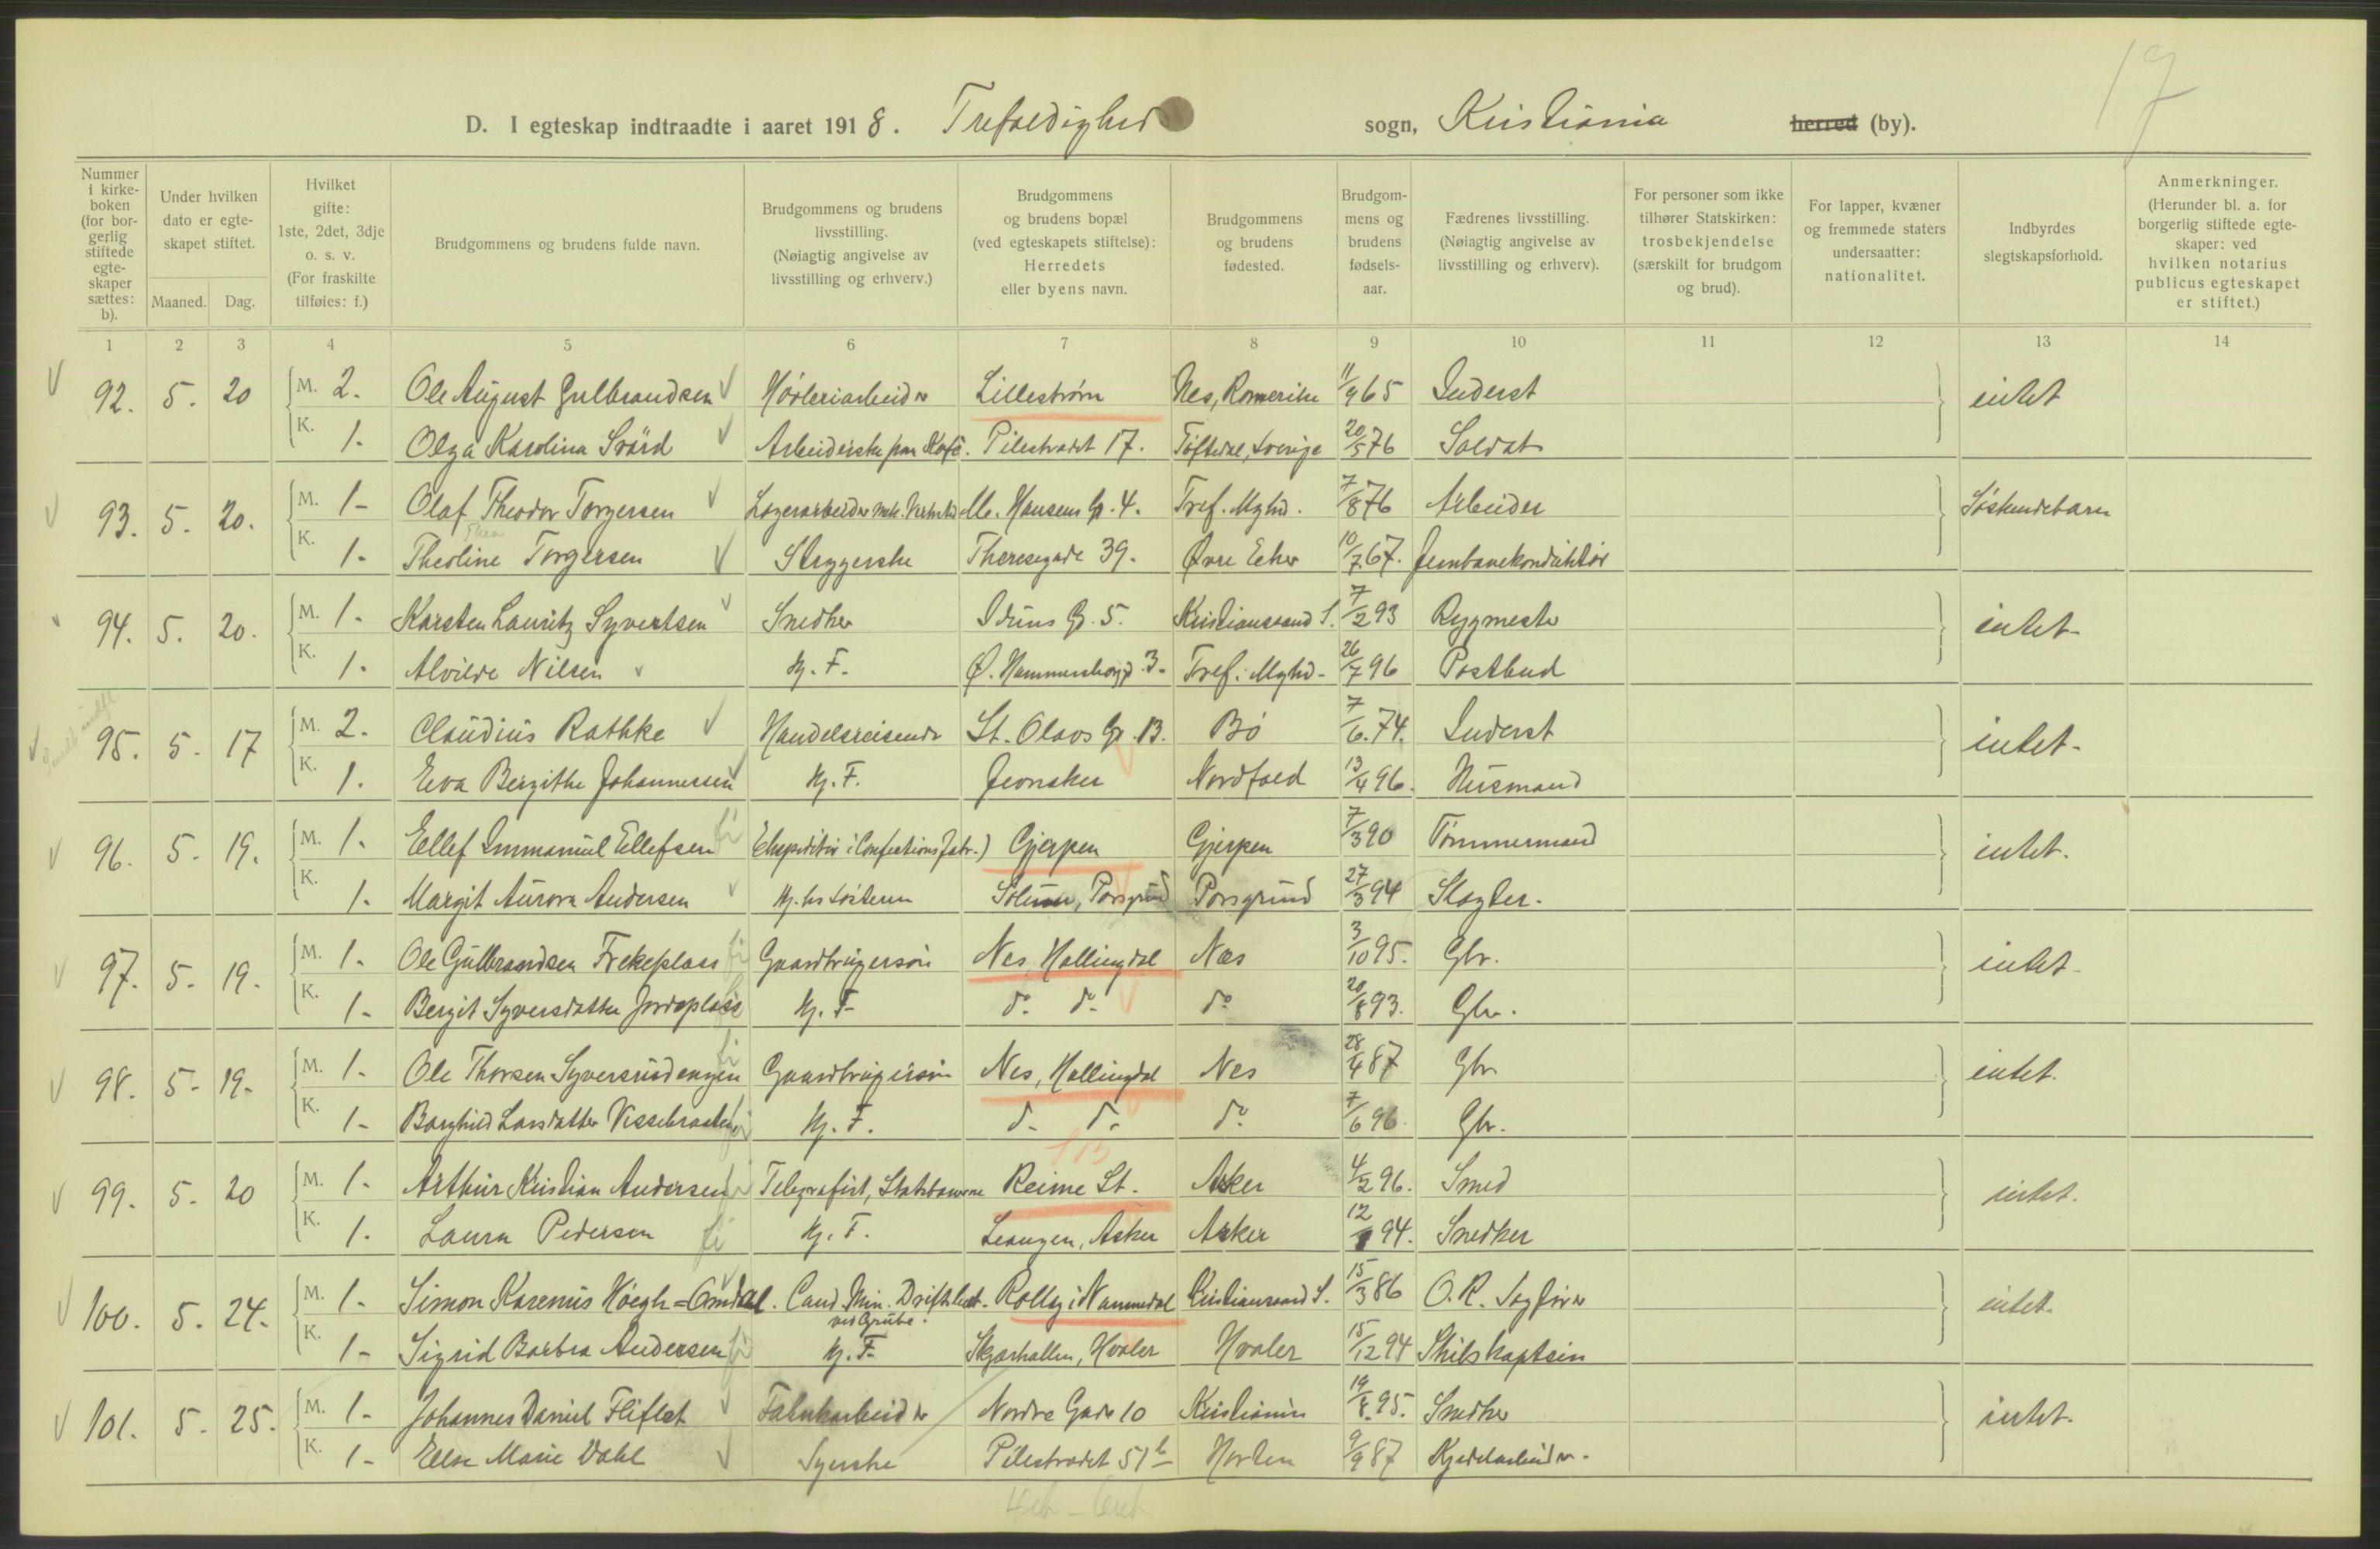 17
D. I egteskap indtraadte i aaret 1918. Trefoldighed sogn, Kristiania herred (by).
Nummer i kirkeboken (for borgerlig stiftede egteskaper sættes: b).
Under hvilken dato er egteskapet stiftet.
Maaned. Dag.
Hvilket gifte: 1ste, 2det, 3dje o. s. v. (For fraskilte tilføies: f.)
Brudgommens og brudens fulde navn.
Brudgommens og brudens livsstilling. (Nøiagtig angivelse av livsstilling og erhverv.)
Brudgommens og brudens bopæl (ved egteskapets stiftelse): Herredets eller byens navn.
Brudgommens og brudens fødested.
Brudgommens og brudens fødselsaar.
Fædrenes livsstilling. (Nøiagtig angivelse av livsstilling og erhverv).
For personer som ikke tilhører Statskirken: trosbekjendelse (særskilt for brudgom og brud).
For lapper, kvæner og fremmede staters undersaatter: nationalitet.
Indbyrdes slegtskapsforhold.
Anmerkninger. (Herunder bl. a. for borgerlig stiftede egteskaper: ved hvilken notarius publicus egteskapet er stiftet.)
1 2 3 4 5 6 7 8 9 10 11 12 13 14
92. 5. 20 M. 2. Ole August Gulbrandsen Høvleriarbeider Lillestrøm Nes, Romerike 11/9 65 Inderst intet
K. 1. Olga Karolina Svärd Arbeiderske paa Kafé. Pilestrædet 17. Töftedal, Sverige 20/5 76 Soldat
93. 5. 20. M. 1- Olaf Theodor Torgersen Lagerarbeider mek. Verksted M. Hansens Gt. 4. Tref. Mghd. 7/8 76 Arbeider Søskendebarn
K. 1- Theoline Torgersen Strygerske Theresegade 39. Øvre Eker 10/7 67. Jernbanekonduktør
94. 5. 20. M. 1. Karsten Lauritz Syvertsen Snedker Iduns Gt. 5. Kristianssand S. 7/2 93 Rygmester intet-
K. 1. Alvilde Nilsen Hj. F. Ø. Hammersborggt. 3. Tref. Mghd- 26/7 96 Postbud
95. 5. 17 M. 2. Claudius Rathke Handelsreisende St. Olavs Gt. 13. Bø 7/6. 74. Inderst intet-
K. 1. Eva Bergithe Johannessen Hj. F. Jevnaker Nordfold 13/4 96. Husmand
96. 5. 19. M. 1. Ellef Immanuel Ellefsen Ekspeditør i Confections fabr.) Gjerpen Gjerpen 7/3 90 Tømmermand intet.
K. 1. Margit Aurora Andersen Hj. hs Søsteren Solum, Porsgrund Porsgrund 27/3 94 Slagter.
97. 5. 19. M. 1. Ole Gulbrandsen Trekeplass Gaardbrugersøn Nes, Hallingdal Næs 3/10 95. Gbr. intet-
K. 1- Bergit Syversdatter Jordeplass Hj. F- do. do. do 20/8 93. Gbr.
98. 5- 19- M. 1. Ole Thorsen Syversrudengen Gaardbrugersøn Nes, Hallingdal Nes 28/4 87 Gbr intet.
K. 1- Borghild Larsdatter Vissebraaten Hj. F. do. do. do. 7/6 96. Gbr.
99. 5. 20 M. 1. Arthur Kristian Andersen Telegrafist, Statsbanerne Reime St. Asker 4/2 96. Smed intet.
K. 1. Laura Pedersen Hj. F. Leangen, Asker Asker 12/1 94. Snedker
100. 5. 24. M. 1. Simon Karenius Høegh=Omdal. Cand. Min. Driftsbest. ved Grube. Kolley i Nummedal Kristianssand S. 15/3 86 O. R. Sagfører intet.
K. 1- Sigrid Barbra Andersen Hj. F- Skjærhallen, Hvaler Hvaler 15/12 94 Skibskaptein
101. 5. 25. M. 1- Johannes Daniel Fliflet Fabrikarbeider Nordre Gade 10 Kristiania 19/8. 95. Snedker intet.
K. 1- Else Marie Dahl Syerske Pilestrædet 51b Horten 9/9 87 Kjedelarbeider.